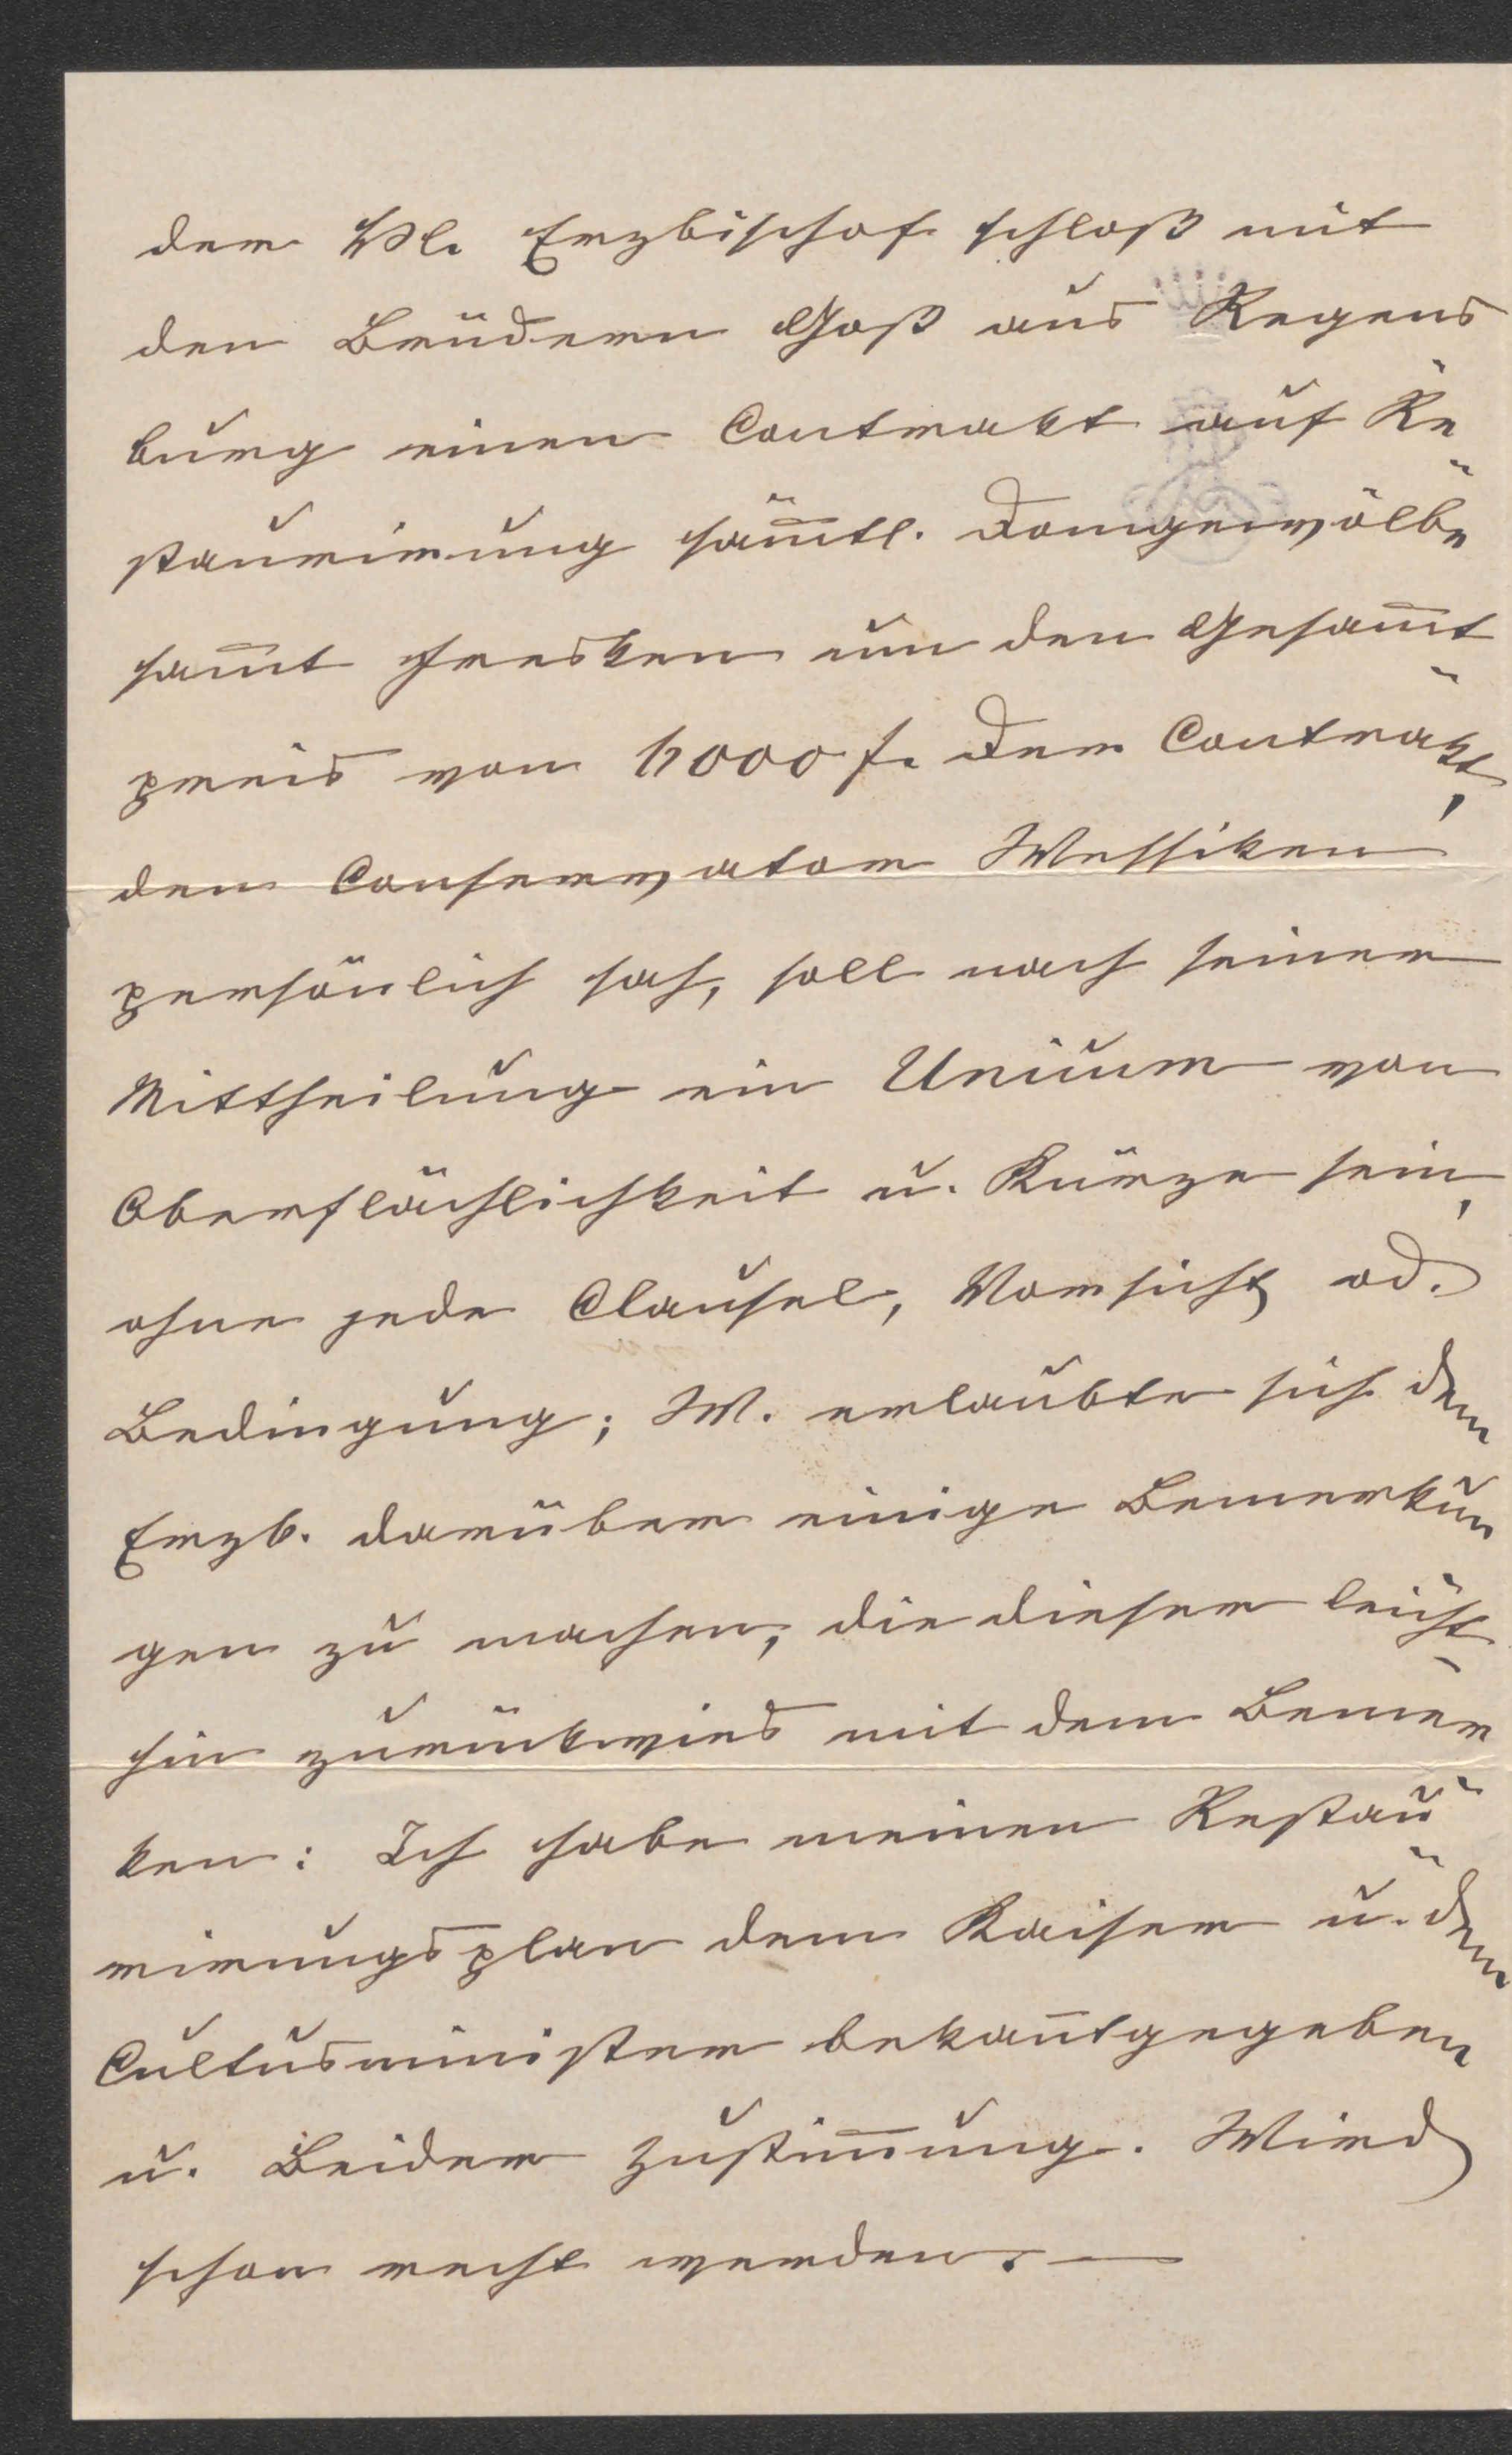 der Hl. Erzbischof schloß mit
den Brüdern Goß aus Regens
burg einen Contrakt auf Re-
staurirung sämmtl. Domgewölbe
sammt Fresken um den Gesammt-
preis von 12000 f. Der Contrakt,
den Conservator Wessiken
persönlich sah, soll nach seiner
Mittheilung ein Unicum von
Oberflächlichkeit u. Kürze sein,
ohne jede Clausel, Vorsicht od.
Bedingung; W. erlaubte sich dem
Erzb. darüber einige Bemerkun
gen zu machen, die dieser leicht-
hin zurückwies mit dem Bemer-
ken: Ich habe meinen Restau-
rirungsplan dem Kaiser u. dem
Cultusminister bekanntgegeben
u. Beider Zustimmung. Wird
schon recht werden. —